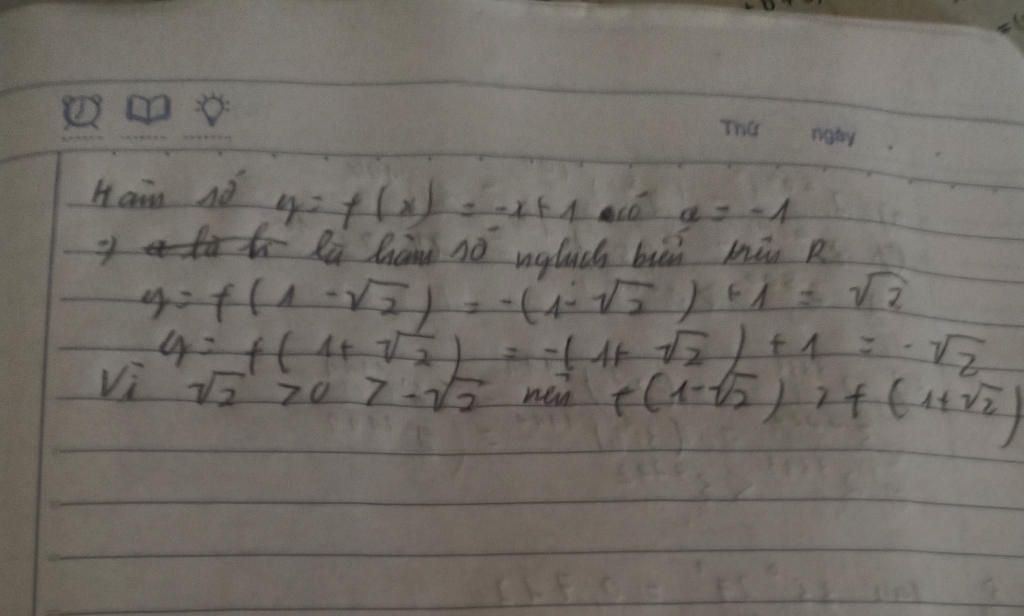 Thứ ngày
Hàm số y = f(x) = -x+1 có a = -1
=> là hàm số nghịch biến trên R
y = f(1 - √2) = -(1 - √2) + 1 = √2
y = f(1 + √2) = -(1 + √2) + 1 = -√2
Vì √2 > 0 > -√2 nên f(1-√2) > f(1+√2)